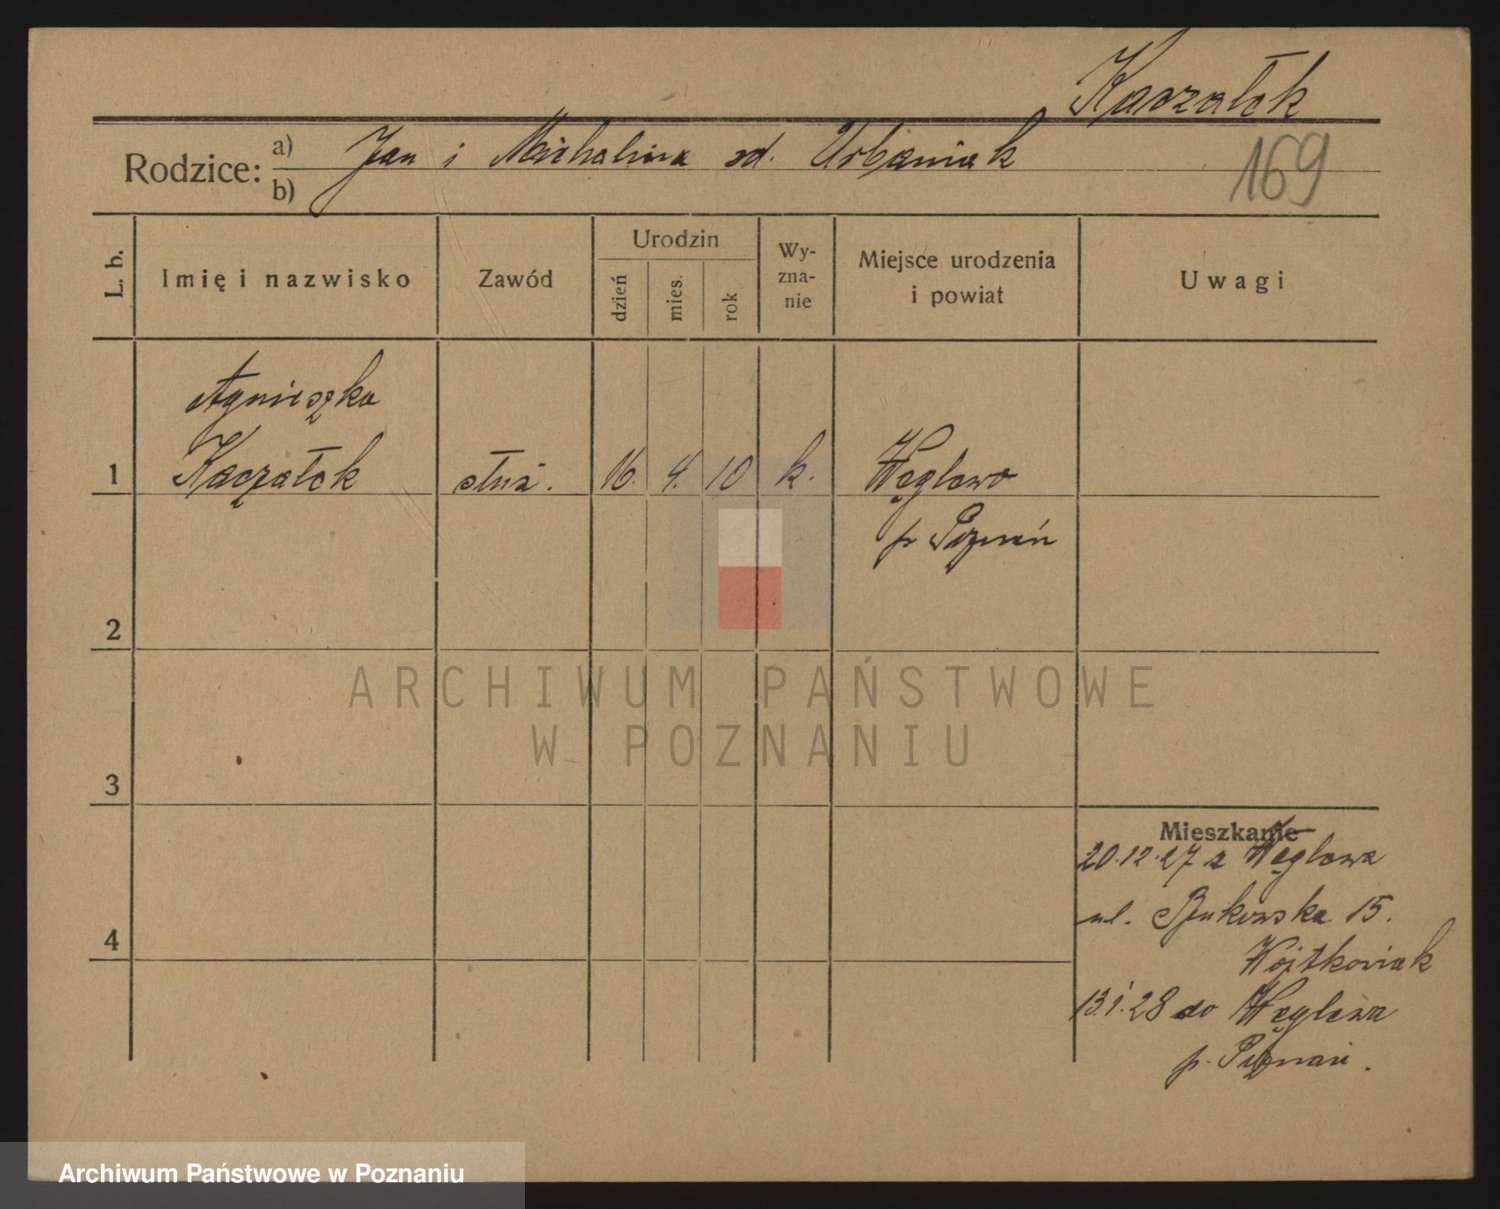 Kaczałek
169
Rodzice:
a) Jan i Michalina zd. Urbaniak
b)
L. b.
Imię i nazwisko
Zawód
Urodzin
dzień
mies.
rok
Wy-
zna-
nie
Miejsce urodzenia
i powiat
Uwagi
Agnieszka
1 Kaczałek służ. 16. 4. 10 k. Węglewo
p. Poznań
2
3
4
Mieszkanie
20.12.27 z Węglewa
ul. Bukowska 15.
Wojtkowiak
13.1.28 do Węglewa
p. Poznań.
ARCHIWUM PAŃSTWOWE
W POZNANIU
Archiwum Państwowe w Poznaniu